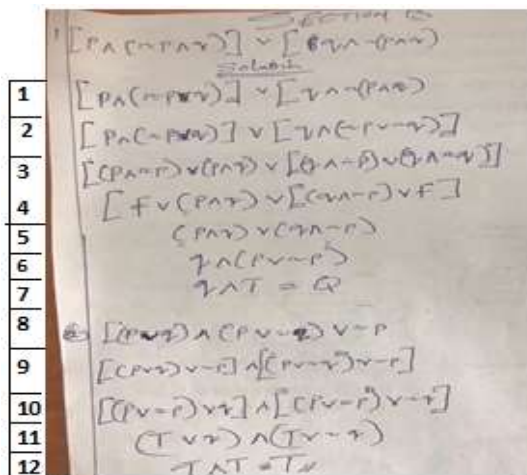 SECTION B
1 [P∧(~P∧q)] ∨ [q∧~(P∧q)
Solution
1 [P∧(~P∨q)] ∨ [q∧~(P∧q)
2 [P∧(~P∨q)] ∨ [q∧(~P∨~q)]
3 [(P∧~P)∨(P∧q)∨[(q∧~P)∨(q∧~q)]
4 [F∨(P∧q)∨[(q∧~P)∨F]
5 (P∧q)∨(q∧~P)
6 q∧(P∨~P)
7 q∧T = Q
8 [(P∨q)∧(P∨~q)∨~P
9 [(P∨q)∨~P]∧[(P∨~q)∨~P]
10 [(P∨~P)∨q]∧[(P∨~P)∨~q]
11 (T∨q)∧(T∨~q)
12 T∧T=T